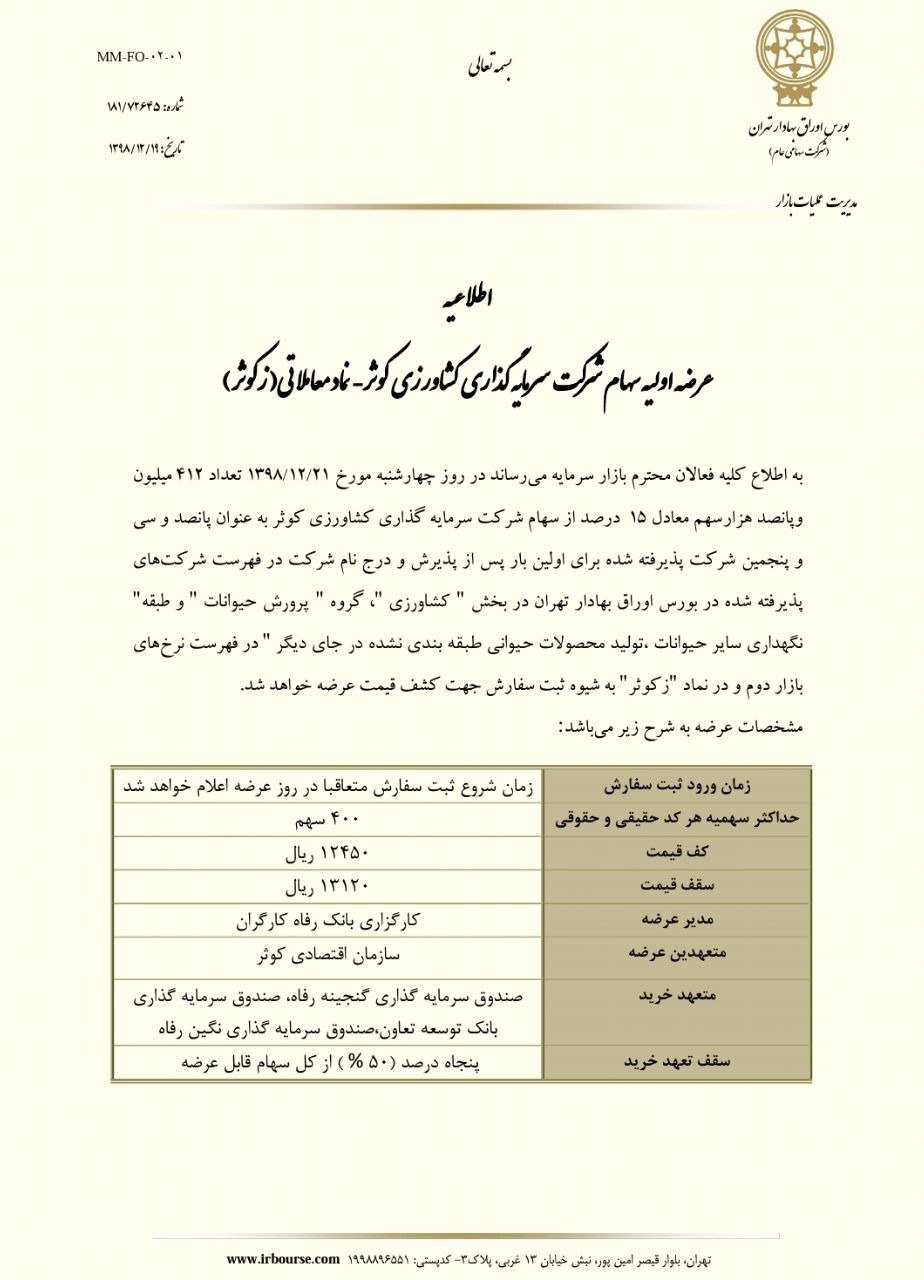 بسمه تعالی
بورس اوراق بهادار تهران
(شرکت سهامی عام)
مدیریت عملیات بازار
MM-FO-۰۲-۰۱
شماره: ۱۸۱/۷۲۶۴۵
تاریخ: ۱۳۹۸/۱۲/۱۹
اطلاعیه
عرضه اولیه سهام شرکت سرمایه گذاری کشاورزی کوثر- نماد معاملاتی(زکوثر)
به اطلاع کلیه فعالان محترم بازار سرمایه می‌رساند در روز چهارشنبه مورخ ۱۳۹۸/۱۲/۲۱ تعداد ۴۱۲ میلیون
وپانصد هزارسهم معادل ۱۵ درصد از سهام شرکت سرمایه گذاری کشاورزی کوثر به عنوان پانصد و سی
و پنجمین شرکت پذیرفته شده برای اولین بار پس از پذیرش و درج نام شرکت در فهرست شرکت‌های
پذیرفته شده در بورس اوراق بهادار تهران در بخش " کشاورزی "، گروه " پرورش حیوانات " و طبقه"
نگهداری سایر حیوانات ،تولید محصولات حیوانی طبقه بندی نشده در جای دیگر " در فهرست نرخ‌های
بازار دوم و در نماد "زکوثر" به شیوه ثبت سفارش جهت کشف قیمت عرضه خواهد شد.
مشخصات عرضه به شرح زیر می‌باشد:
زمان ورود ثبت سفارش زمان شروع ثبت سفارش متعاقبا در روز عرضه اعلام خواهد شد
حداکثر سهمیه هر کد حقیقی و حقوقی ۴۰۰ سهم
کف قیمت ۱۲۴۵۰ ریال
سقف قیمت ۱۳۱۲۰ ریال
مدیر عرضه کارگزاری بانک رفاه کارگران
متعهدین عرضه سازمان اقتصادی کوثر
متعهد خرید صندوق سرمایه گذاری گنجینه رفاه، صندوق سرمایه گذاری
بانک توسعه تعاون،صندوق سرمایه گذاری نگین رفاه
سقف تعهد خرید پنجاه درصد (۵۰ %) از کل سهام قابل عرضه
تهران، بلوار قیصر امین پور، نبش خیابان ۱۳ غربی، پلاک۳- کدپستی: ۱۹۹۸۸۹۶۵۵۱ www.irbourse.com